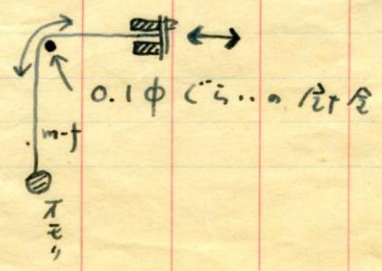 0.1φ ぐらいの
m-f
オモリ